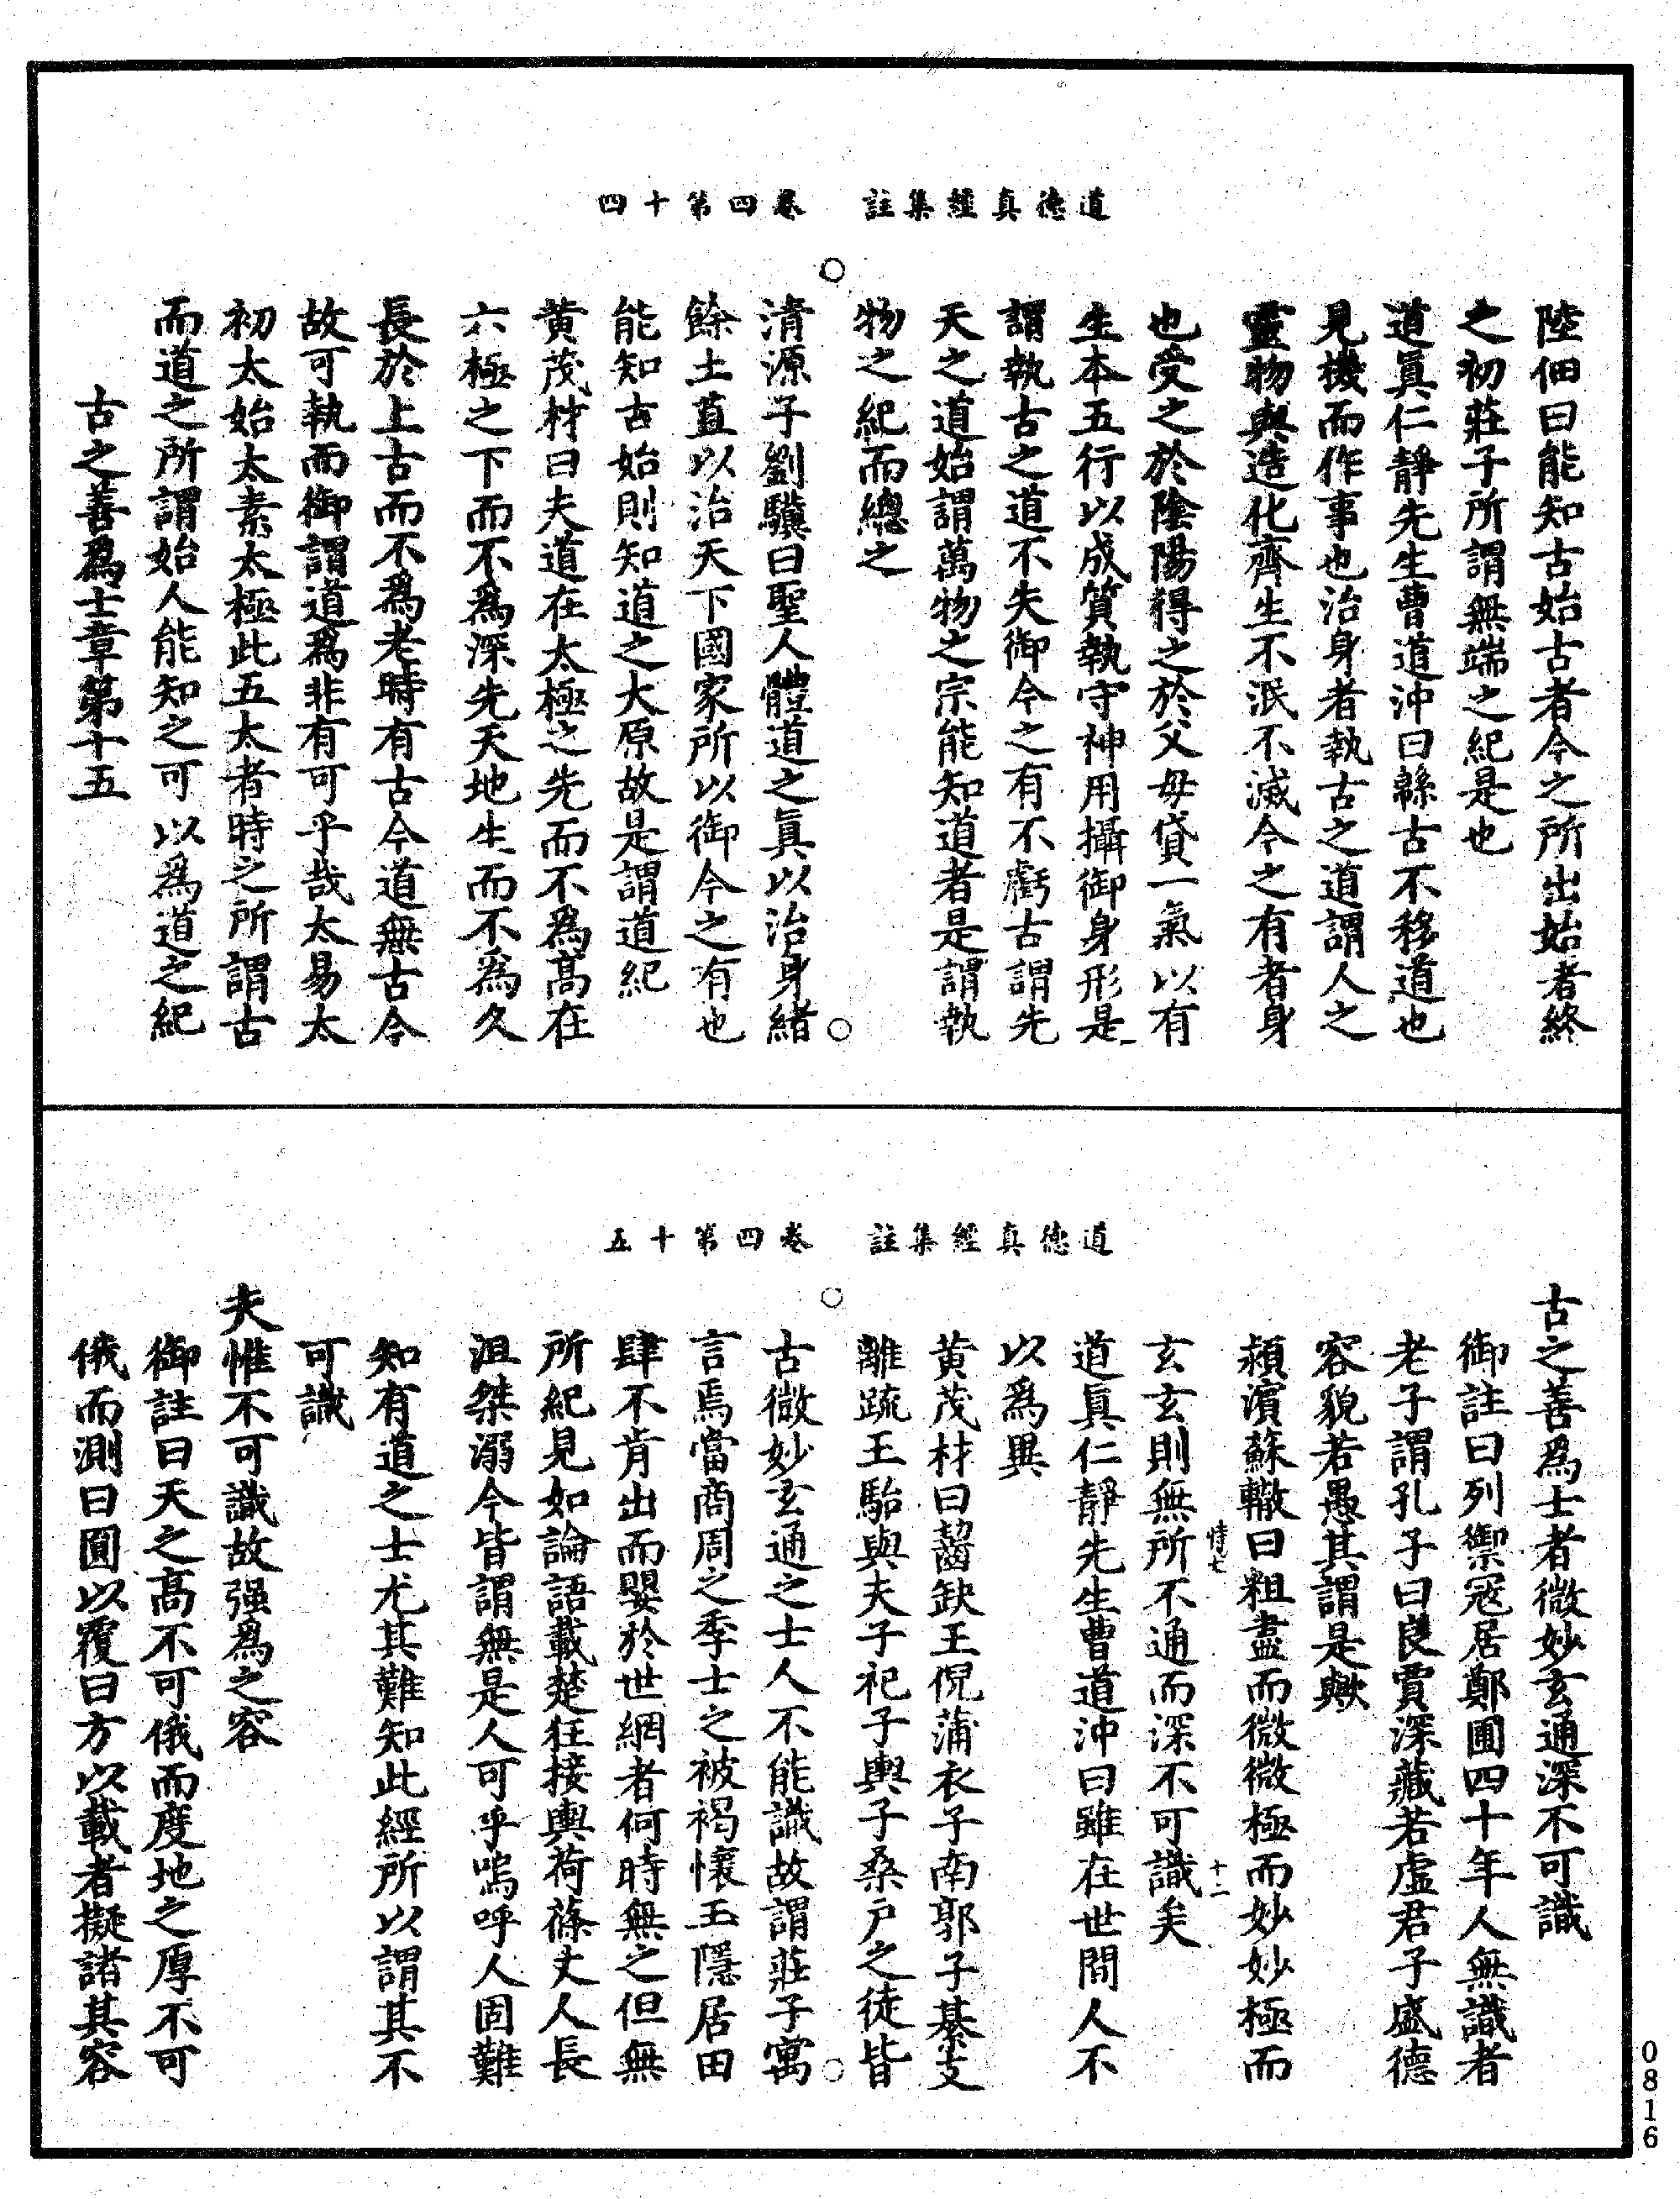 道德真經集註　卷四第十四
陸佃曰能知古始古者今之所出始者終
之初莊子所謂無端之紀是也
道真仁靜先生曹道沖曰緜古不移道也
見機而作事也治身者執古之道謂人之
靈物與造化齊生不泯不滅今之有者身
也受之於陰陽得之於父母貸一氣以有
生本五行以成質執守神用攝御身形是
謂執古之道不失御今之有不虧古謂先
天之道始謂萬物之宗能知道者是謂執
物之紀而總之
清源子劉驥曰聖人體道之真以治身緒
餘土苴以治天下國家所以御今之有也
能知古始則知道之大原故是謂道紀
黄茂材曰夫道在太極之先而不為高在
六極之下而不為深先天地生而不為久
長於上古而不為老時有古今道無古今
故可執而御謂道為非有可乎哉太易太
初太始太素太極此五太者時之所謂古
而道之所謂始人能知之可以為道之紀
古之善為士章第十五
道德真經集註　卷四第十五
古之善為士者微妙玄通深不可識
御註曰列禦冦居鄭圃四十年人無識者
老子謂孔子曰良賈深藏若虛君子盛德
容貌若愚其謂是歟
潁濱蘇轍曰粗盡而微微極而妙妙極而
玄玄則無所不通而深不可識矣
特七　十二
道真仁靜先生曹道沖曰雖在世間人不
以為異
黄茂材曰齧缺王倪蒲衣子南郭子綦支
離䟽王駘與夫子祀子輿子桑户之徒皆
古微妙玄通之士人不能識故謂莊子寓
言焉當商周之季士之被褐懷玉隱居田
肆不肯出而嬰於世網者何時無之但無
所紀見如論語載楚狂接輿荷蓧丈人長
沮桀溺今皆謂無是人可乎嗚呼人固難
知有道之士尤其難知此經所以謂其不
可識
夫惟不可識故强為之容
御註曰天之高不可俄而度地之厚不可
俄而測曰圓以覆曰方以載者擬諸其容
0816